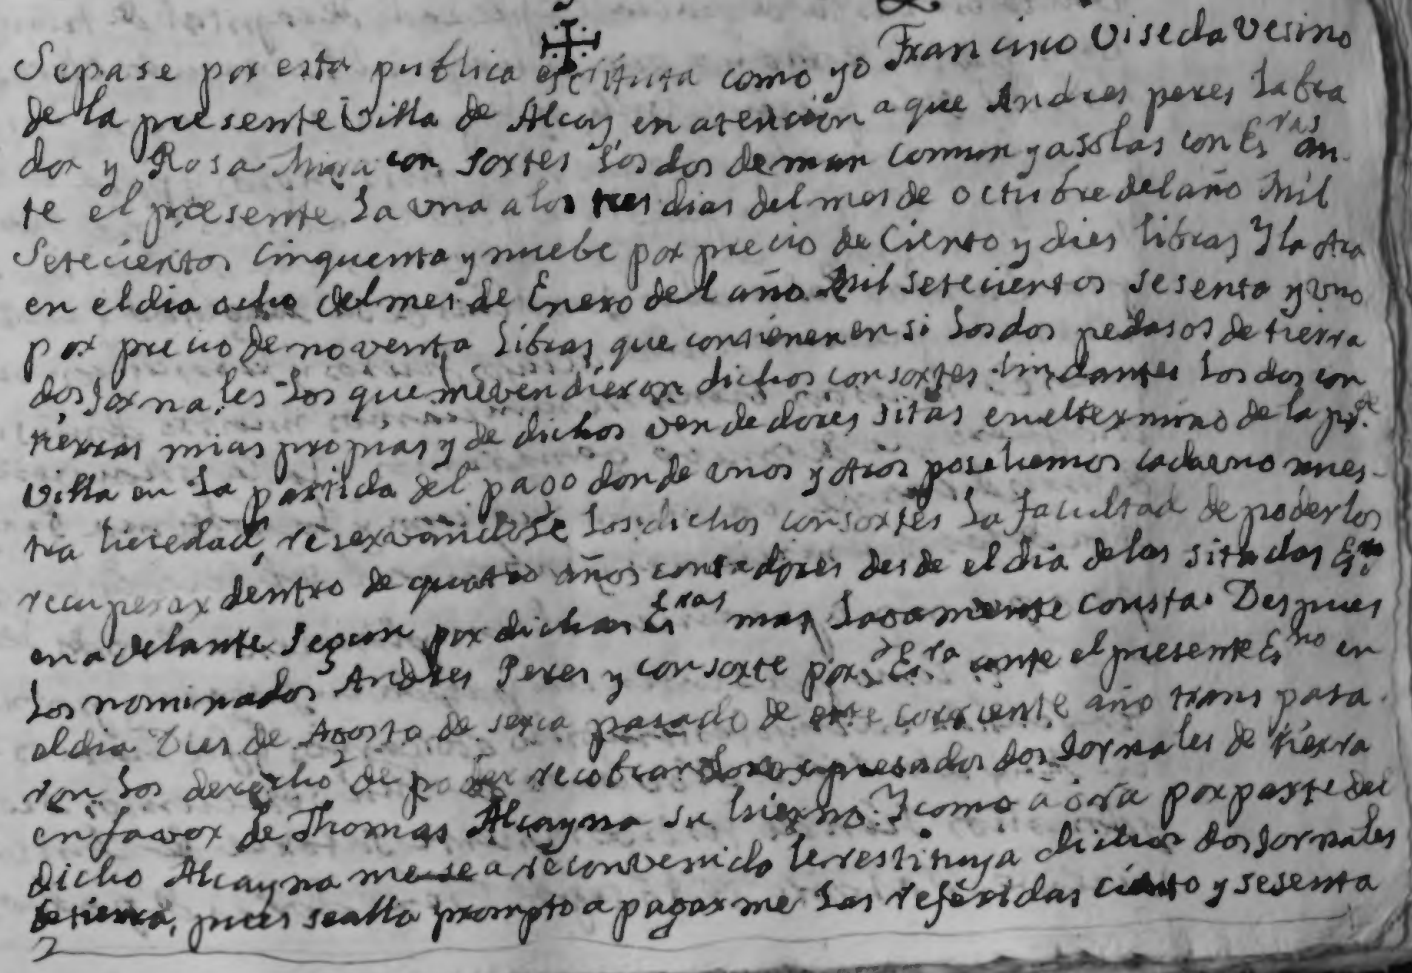 Sepase por esta publica escritura como yo Francisco Visedo Vesino
de la presente Villa de Alcoy en atencion a que Andres peres Labra
dor y Rosa Mira con sortes Los dos de man comun y asolas con Es.ras an-
te el presente La una a los tres dias del mes de octubre del año Mil
Setecientos Cinquenta y nuebe por precio de Ciento y dies libras Y la otra
en el dia ocho del mes de Enero del año Mil setecientos sesenta y uno
por precio de noventa Libras que contienen en si Los dos pedasos de tierra
dos Jornales Los que me vendieron dichos consortes lindantes Los dos con
tierras mias propias y de dichos vendedores sitas en el termino de la pr.te
Villa en La partida del pago donde unos y otros posehemos cada uno nues-
tra heredad, reservandose Los dichos consortes La facultad de poderlos
recuperar dentro de quatro años contadores desde el dia de las sitadas Es.ras
en adelante segun por dichas Es.ras mas Largamente consta. Despues
Los nominados Andres Peres y consorte por Es.ra ante el presente Es.no en
el dia tres de Agosto de serca pasado de este corriente año trans pasa-
ron Los derechos de poder recobrar Los expresados dos Jornales de tierra
en favor de Thomas Alcayna su hierno. Y como aora por parte del
dicho Alcayna me se a reconvenido le restituya dichos dos Jornales
de tierra, pues se alla prompto a pagarme Las referidas ciento y sesenta